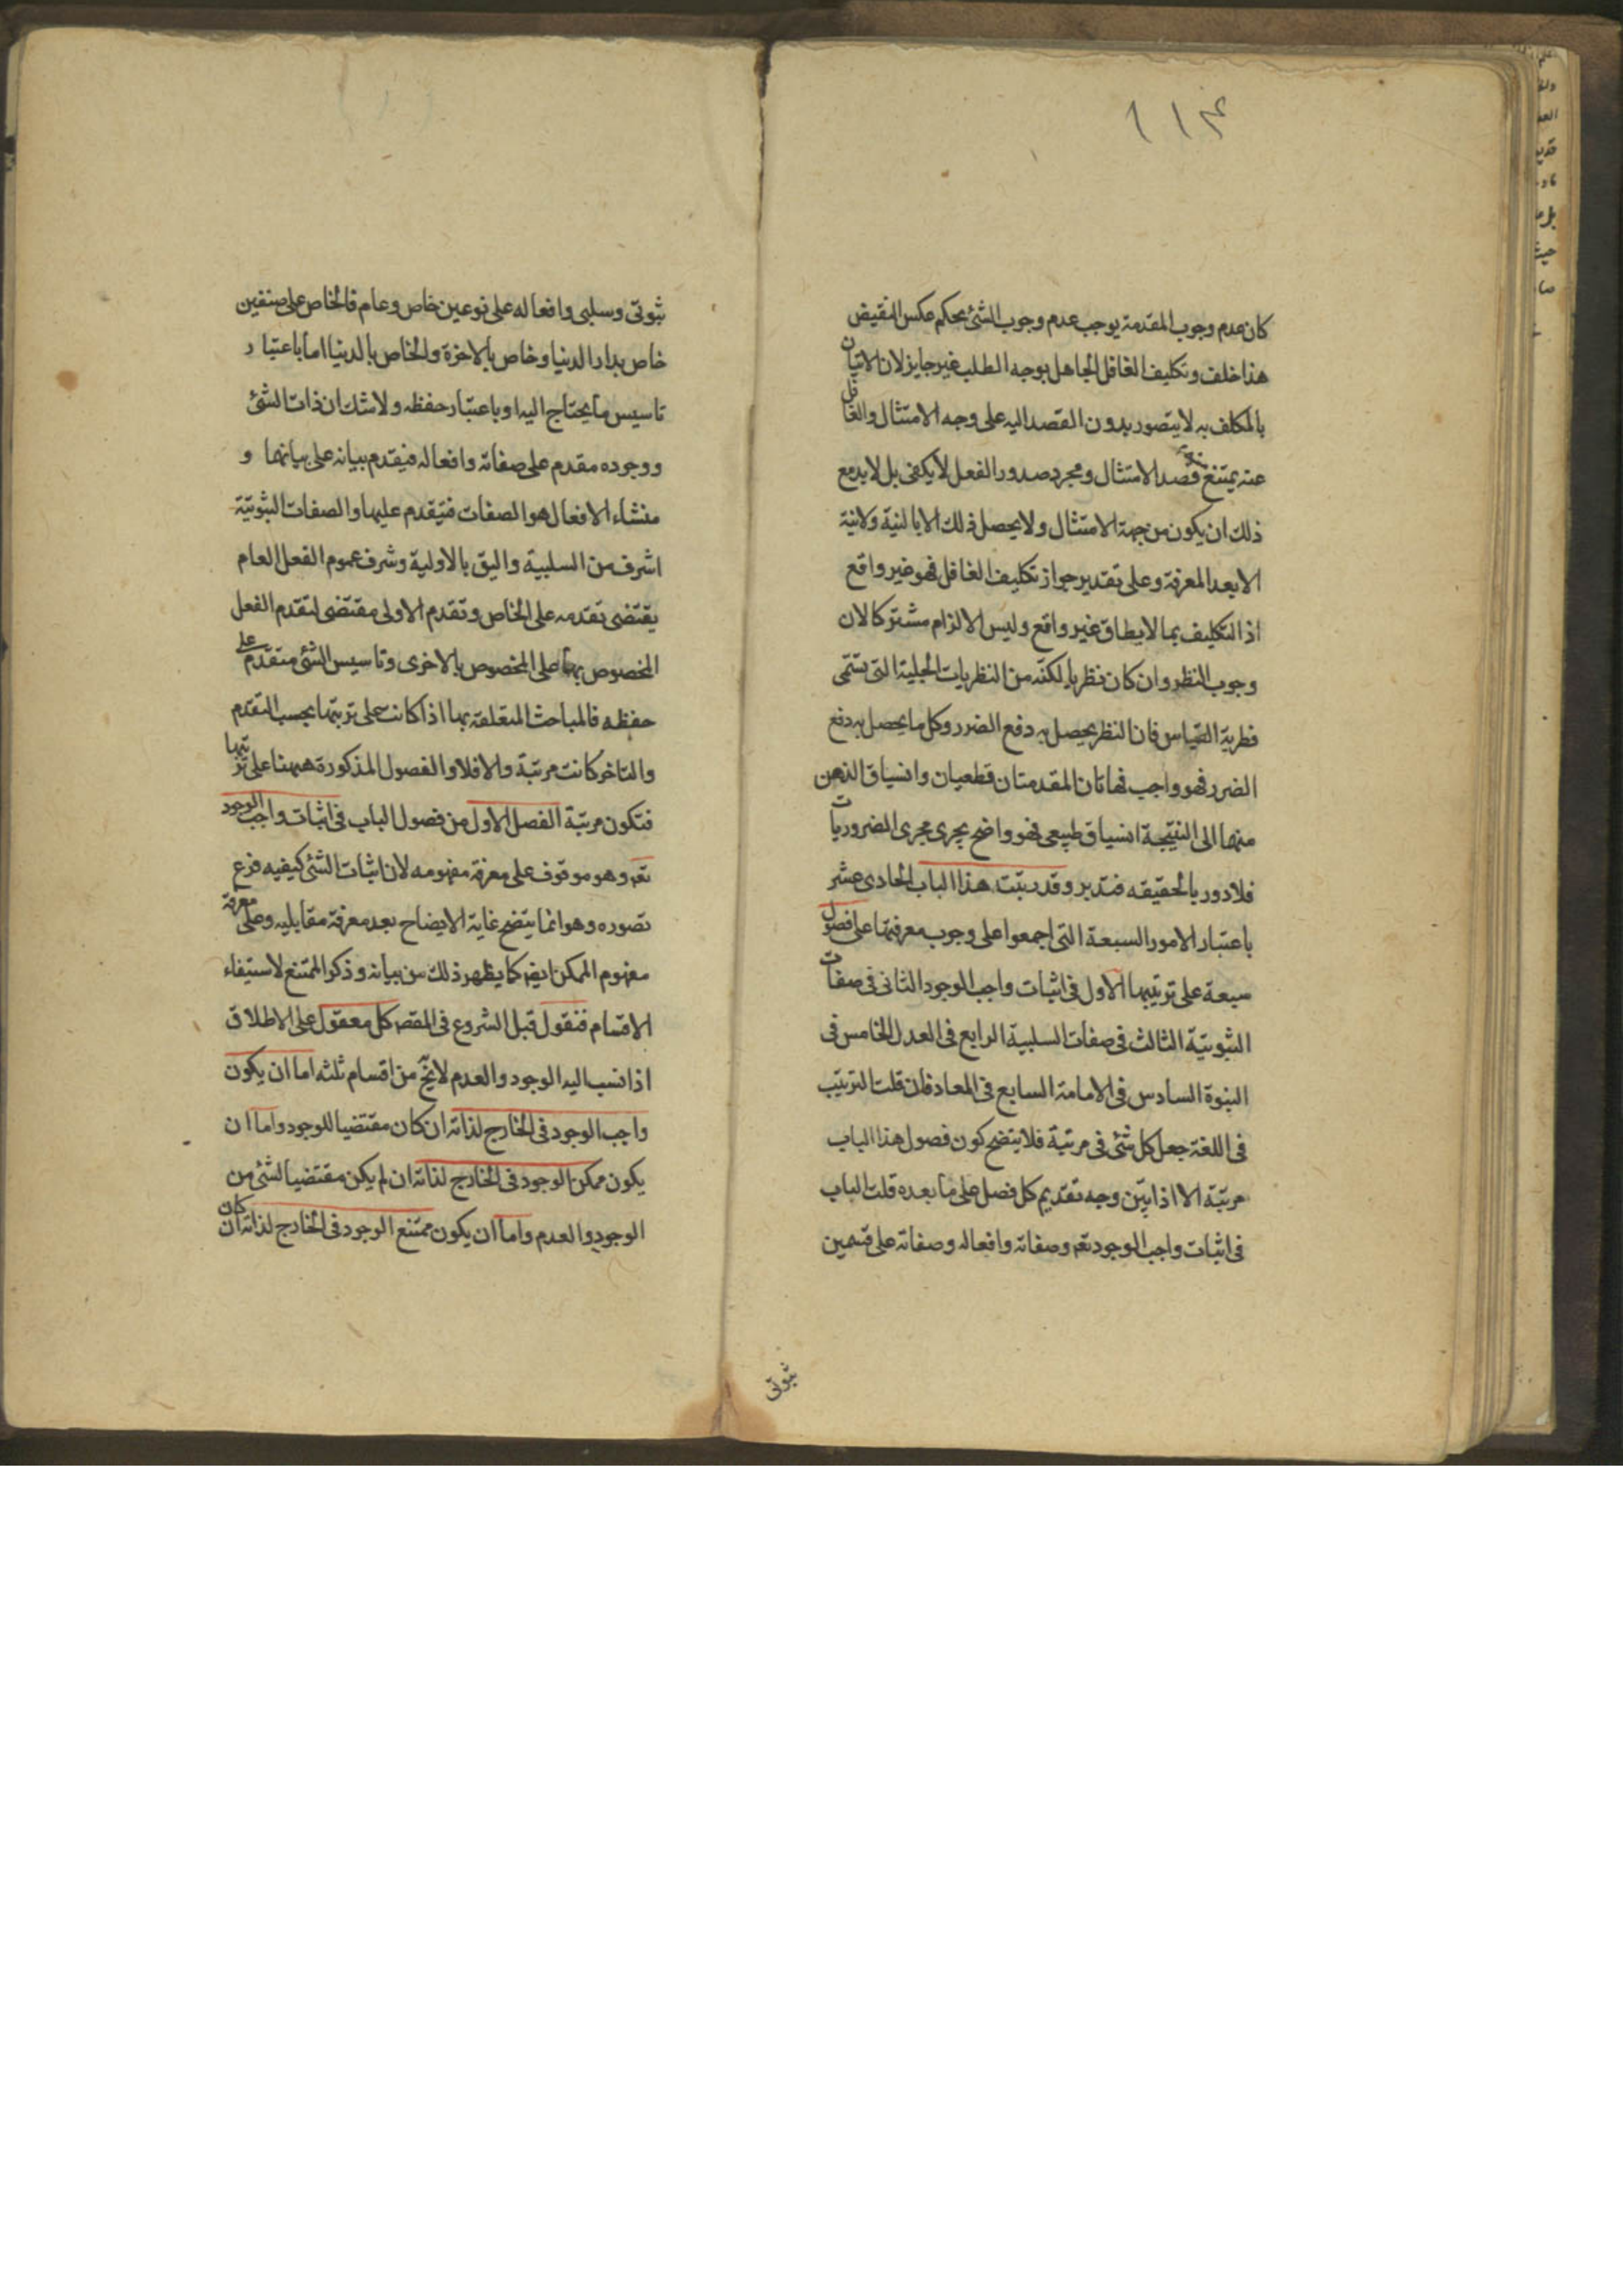 ١١۴
كان عدم وجوب المقدمة يوجب عدم وجوب الشئ بحكم عكس النقيض
هذا خلف وتكليف الغافل الجاهل بوجه الطلب غير جايز لان الاتيان
بالمكلف به لا يتصور بدون القصد اليه على وجه الامتثال والغافل
عنه يمتنع قصد الامتثال ومجرد صدور الفعل لا يكفى بل لا بد مع
ذلك ان يكون من جهة الامتثال ولا يحصل ذلك الا بالنية ولا نية
الا بعد المعرفة وعلى تقدير جواز تكليف الغافل فهو غير واقع
اذ التكليف بما لا يطاق غير واقع وليس الالزام مشتركا لان
وجوب النظر وان كان نظريا لكنه من النظريات الجلية التى تسمى
فطرية القياس فان النظر يحصل به دفع الضرر وكل ما يحصل به دفع
الضرر فهو واجب فهاتان المقدمتان قطعيان وانسياق الذهن
منهما الى النتيجة انسياق طبيعى فهو واضح يجرى مجرى الضروريات
فلا دور بالحقيقه فتدبر وقد رتبت هذا الباب الحادى عشر
باعتبار الامور السبعة التى اجمعوا على وجوب معرفتها على فصول
سبعة على ترتيبها الاول فى اثبات واجب الوجود الثانى فى صفات
الثبوتية الثالث فى صفات السلبية الرابع فى العدل الخامس فى
النبوة السادس فى الامامة السابع فى المعاد فان قلت الترتيب
فى اللغة جعل كل شئ فى مرتبة فلا يتضح كون فصول هذا الباب
مرتبة الا اذا بين وجه تقديم كل فصل على ما بعده قلت الباب
فى اثبات واجب الوجود تعه وصفاته وافعاله وصفاته على قسمين
ثبوتى
ثبوتى وسلبى وافعاله على نوعين خاص وعام فالخاص على صنفين
خاص بدار الدنيا وخاص بالاخرة والخاص بالدنيا اما باعتبار
تاسيس ما يحتاج اليه او باعتبار حفظه ولا شك ان ذات الشئ
ووجوده مقدم على صفاته وافعاله فيقدم بيانه على بيانها و
منشاء الافعال هو الصفات فتيقدم عليها والصفات الثبوتية
اشرف من السلبية واليق بالاولية وشرف عموم الفعل العام
يقتضى تقدمه على الخاص وتقدم الاولى مقتضى لتقدم الفعل
المخصوص بها على المخصوص بالاخرى وتاسيس الشئ متقدم على
حفظه فالمباحث المتعلقة بها اذا كانت على ترتيبها بحسب التقدم
والتاخر كانت مرتبة والا فلا والفصول المذكورة ههنا على ترتيبها
فتكون مرتبة الفصل الاول من فصول الباب فى اثبات واجب الوجود
تعه وهو موقوف على معرفة مفهومه لان اثبات الشئ كيفيه فرع
تصوره وهو انما يتضح غاية الايضاح بعد معرفة مقابليه وعلى معرفة
مفهوم الممكن ايضه كما يظهر ذلك من بيانه وذكر الممتنع لاستيفاء
الاقسام فنقول قبل الشروع فى المقصه كل معقول على الاطلاق
اذا نسب اليه الوجود والعدم لا يخ من اقسام ثلثه اما ان يكون
واجب الوجود فى الخارج لذاته ان كان مقتضيا للوجود واما ان
يكون ممكن الوجود فى الخارج لذاته ان لم يكن مقتضيا لشئ من
الوجود والعدم واما ان يكون ممتنع الوجود فى الخارج لذاته ان كان